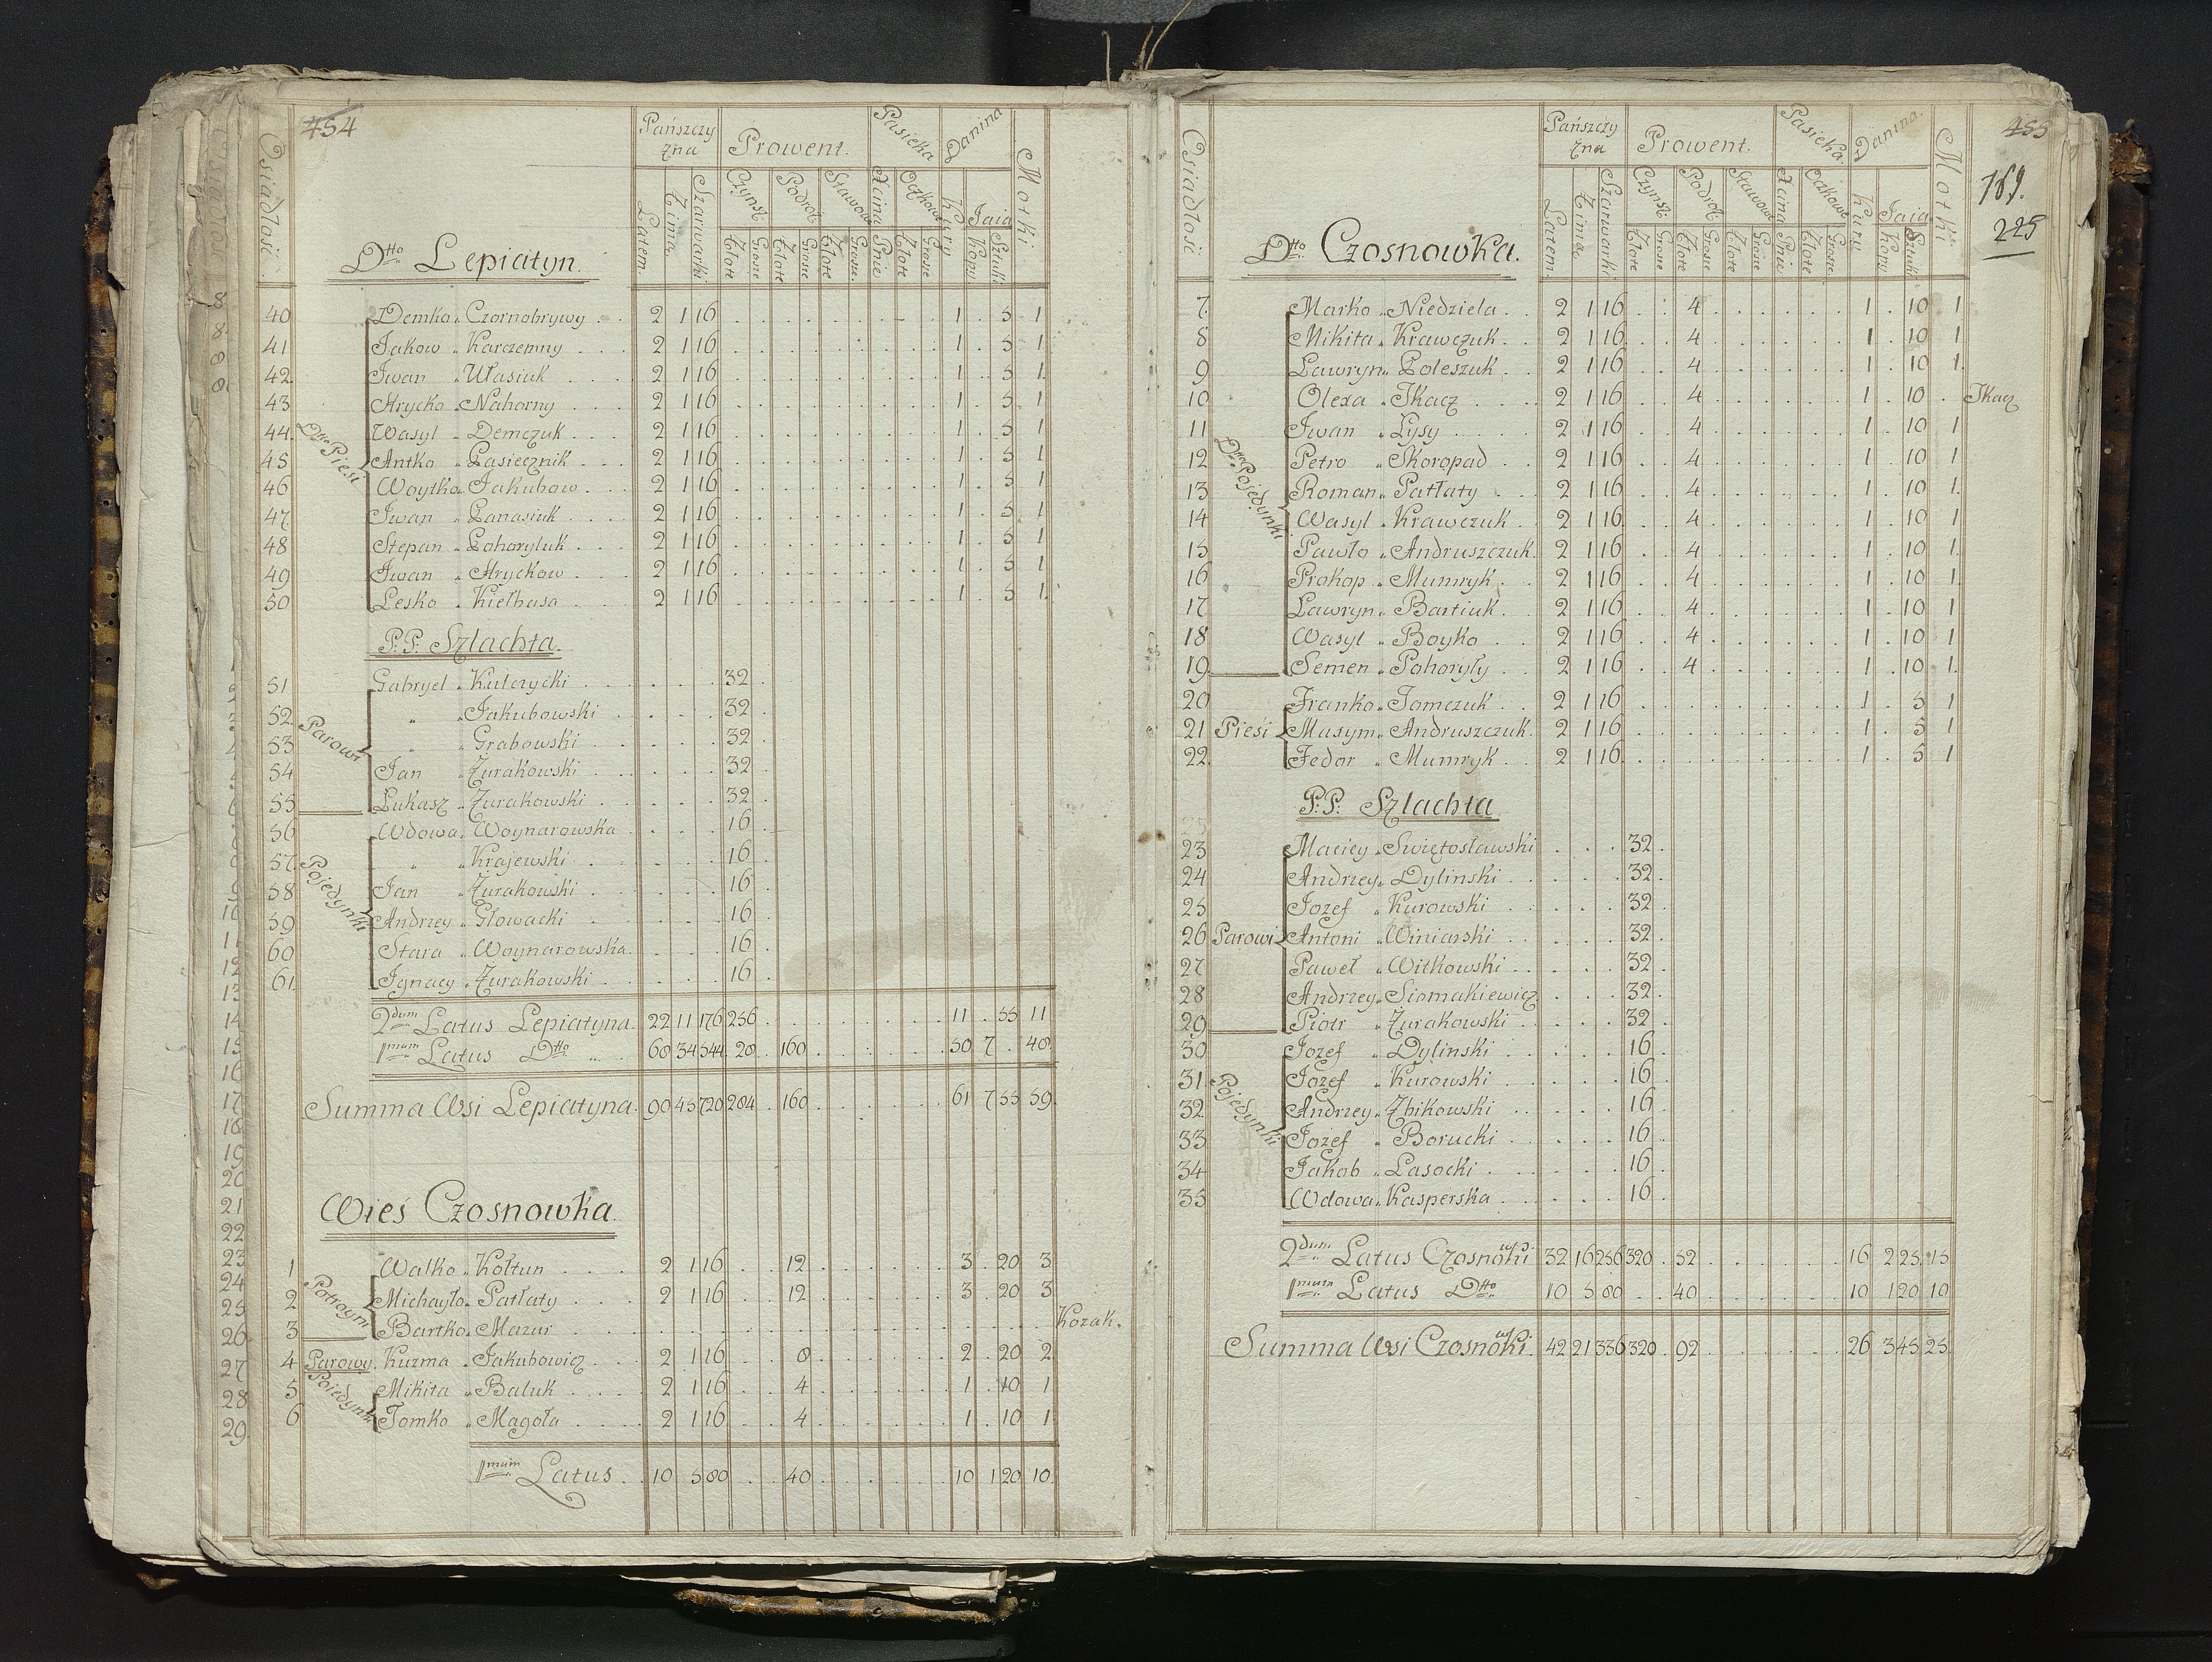 454
Osiadłość
Pańszczyzna
Prowent.
Pasieka
Danina
Motki
Latem.
Zima.
Szarwarki
Czynsz
Podroż
Stawowe
Oczkowe
Kury
Jaia
Złote Grosie Złote Grosie Złote Grosie. Pnie Złote Grosie Kopy Sztuki
Dtto Lepiatyn.
Dtto Piesi
40 Demko „ Czornobrywy . 2 1 16 1 5 1
41 Jakow „ Karczemny . . . 2 1 16 1 5 1
42. Jwan „ Własiuk . . . 2 1 16 1 5 1
43 Hrycko „ Nahorny . . . 2 1 16 1 5 1
44. Wasyl „ Demczuk . . . 2 1 16 1 5 1
45 Antko „ Pasiecznik . . 2 1 16 1 5 1
46 Woytko „ Jakubow . . . 2 1 16 1 5 1
47. Jwan „ Panasiuk . . . 2 1 16 1 5 1
48 Stepan „ Pohoryluk . . . 2 1 16 1 5 1
49 Jwan „ Hryckow . . . 2 1 16 1 5 1
50 Lesko „ Kiełbasa . . . 2 1 16 1 5 1.
P.P. Szlachta.
51 Gabryel „ Kulczycki . . 32
Parowi
52 „ „ Jakubowski . . 32
53 „ „ Grabowski . . 32
54 Jan „ Żurakowski . . 32
55 Łukasz „ Żurakowski . . 32
Pojedynki
56 Wdowa „ Woynarowska . 16
57. „ „ Krajewski . . 16
58 Jan „ Żurakowski . . 16
59 Andrzey „ Głowacki . . 16
60 Stara „ Woynarowska. . 16
61 Jgnacy „ Żurakowski . . 16
2dum Latus Lepiatyna. 22 11 176 256 11 . 55 11
1mum Latus Dtto „ . . 68 34 544 28 . 160 50 7 . 48
Summa Wsi Lepiatyna. 90 45 720 284 . 160 61 7 55 59.
Wieś Czosnowka.
Potroym
1 Walko „ Kołtun . . . 2 1 16 12 3 . 20 3
2 Michayło „ Patłaty . . . 2 1 16 12 3 . 20 3
3 Bartko „ Mazur . . . Kozak.
4 Parowy. Kuzma „ Jakubowicz . . 2 1 16 8 2 . 20 2
Poiedynk
5 Mikita „ Baluk . . . 2 1 16 4 1 . 10 1
6 Tomko „ Magoła . . . 2 1 16 4 1 . 10 1
1mum Latus . . 10 5 80 . . 40 10 1 20 10.
455
169.
225
Osiadłość
Pańszczyzna
Prowent.
Pasieka.
Danina.
Motki
Latem.
Zima.
Szarwarki
Czynsz
Podroż
Stawowe
Oczkowe
Kury
Jaia
Złote Grosie Złote Grosie Złote Grosie Pnie Złote Grosie. Kopy Sztuki
Dtto Czosnowka.
Dtto Pojedynki
7. Marko „ Niedziela . . 2 1 16 4 1 . 10 1
8 Mikita „ Krawczuk . . 2 1 16 4 1 . 10 1
9 Lawryn „ Poleszuk . . 2 1 16 4 1 . 10 1.
10 Olexa „ Tkacz . . . 2 1 16 4 1 . 10 . Tkacz
11 Jwan „ Łysy . . . 2 1 16 4 1 . 10 1
12 Petro „ Skoropad . . 2 1 16 4 1 . 10 1
13 Roman „ Patłaty . . 2 1 16 4 1 . 10 1.
14 Wasyl „ Krawczuk . . 2 1 16 4 1 . 10 1
15 Pawło „ Andruszczuk. 2 1 16 4 1 . 10 1.
16 Prokop „ Mumryk . . 2 1 16 4 1 . 10 1.
17 Lawryn „ Bartiuk . . 2 1 16 4 1 . 10 1
18 Wasyl „ Boyko . . 2 1 16 4 1 . 10 1
19 Semen „ Pohoryły . . 2 1 16 4 1 . 10 1.
Piesi
20 Franko „ Tomczuk . . 2 1 16 1 . 5 1
21 Maxym „ Andruszczuk. 2 1 16 1 . 5 1
22. Fedor „ Mumryk . . 2 1 16 1 . 5 1
P.P. Szlachta
Parowi
23 Maciey „ Swiętosławski . . 32
24 Andrzey „ Dylinski . . 32
25 Jozef „ Kurowski . . 32
26 Antoni „ Winiarski . . 32
27 Paweł „ Witkowski . . 32
28 Andrzey „ Siomakiewicz . . 32
29 Piotr „ Żurakowski . . 32
Pojedynki
30 Jozef „ Dylinski . . 16
31. Jozef „ Kurowski . . 16
32. Andrzey „ Zbikowski . . 16
33 Jozef „ Borucki . . 16
34 Jakob „ Lasocki . . 16
35 Wdowa „ Kasperska . . 16
2dum Latus Czosnowki 32 16 256 320 . 52 16 2 25 15
1mum Latus Dtto 10 5 80 . . 40 10 1 20 10
Summa Wsi Czosnowki. 42 21 336 320 . 92 26 3 45 25.